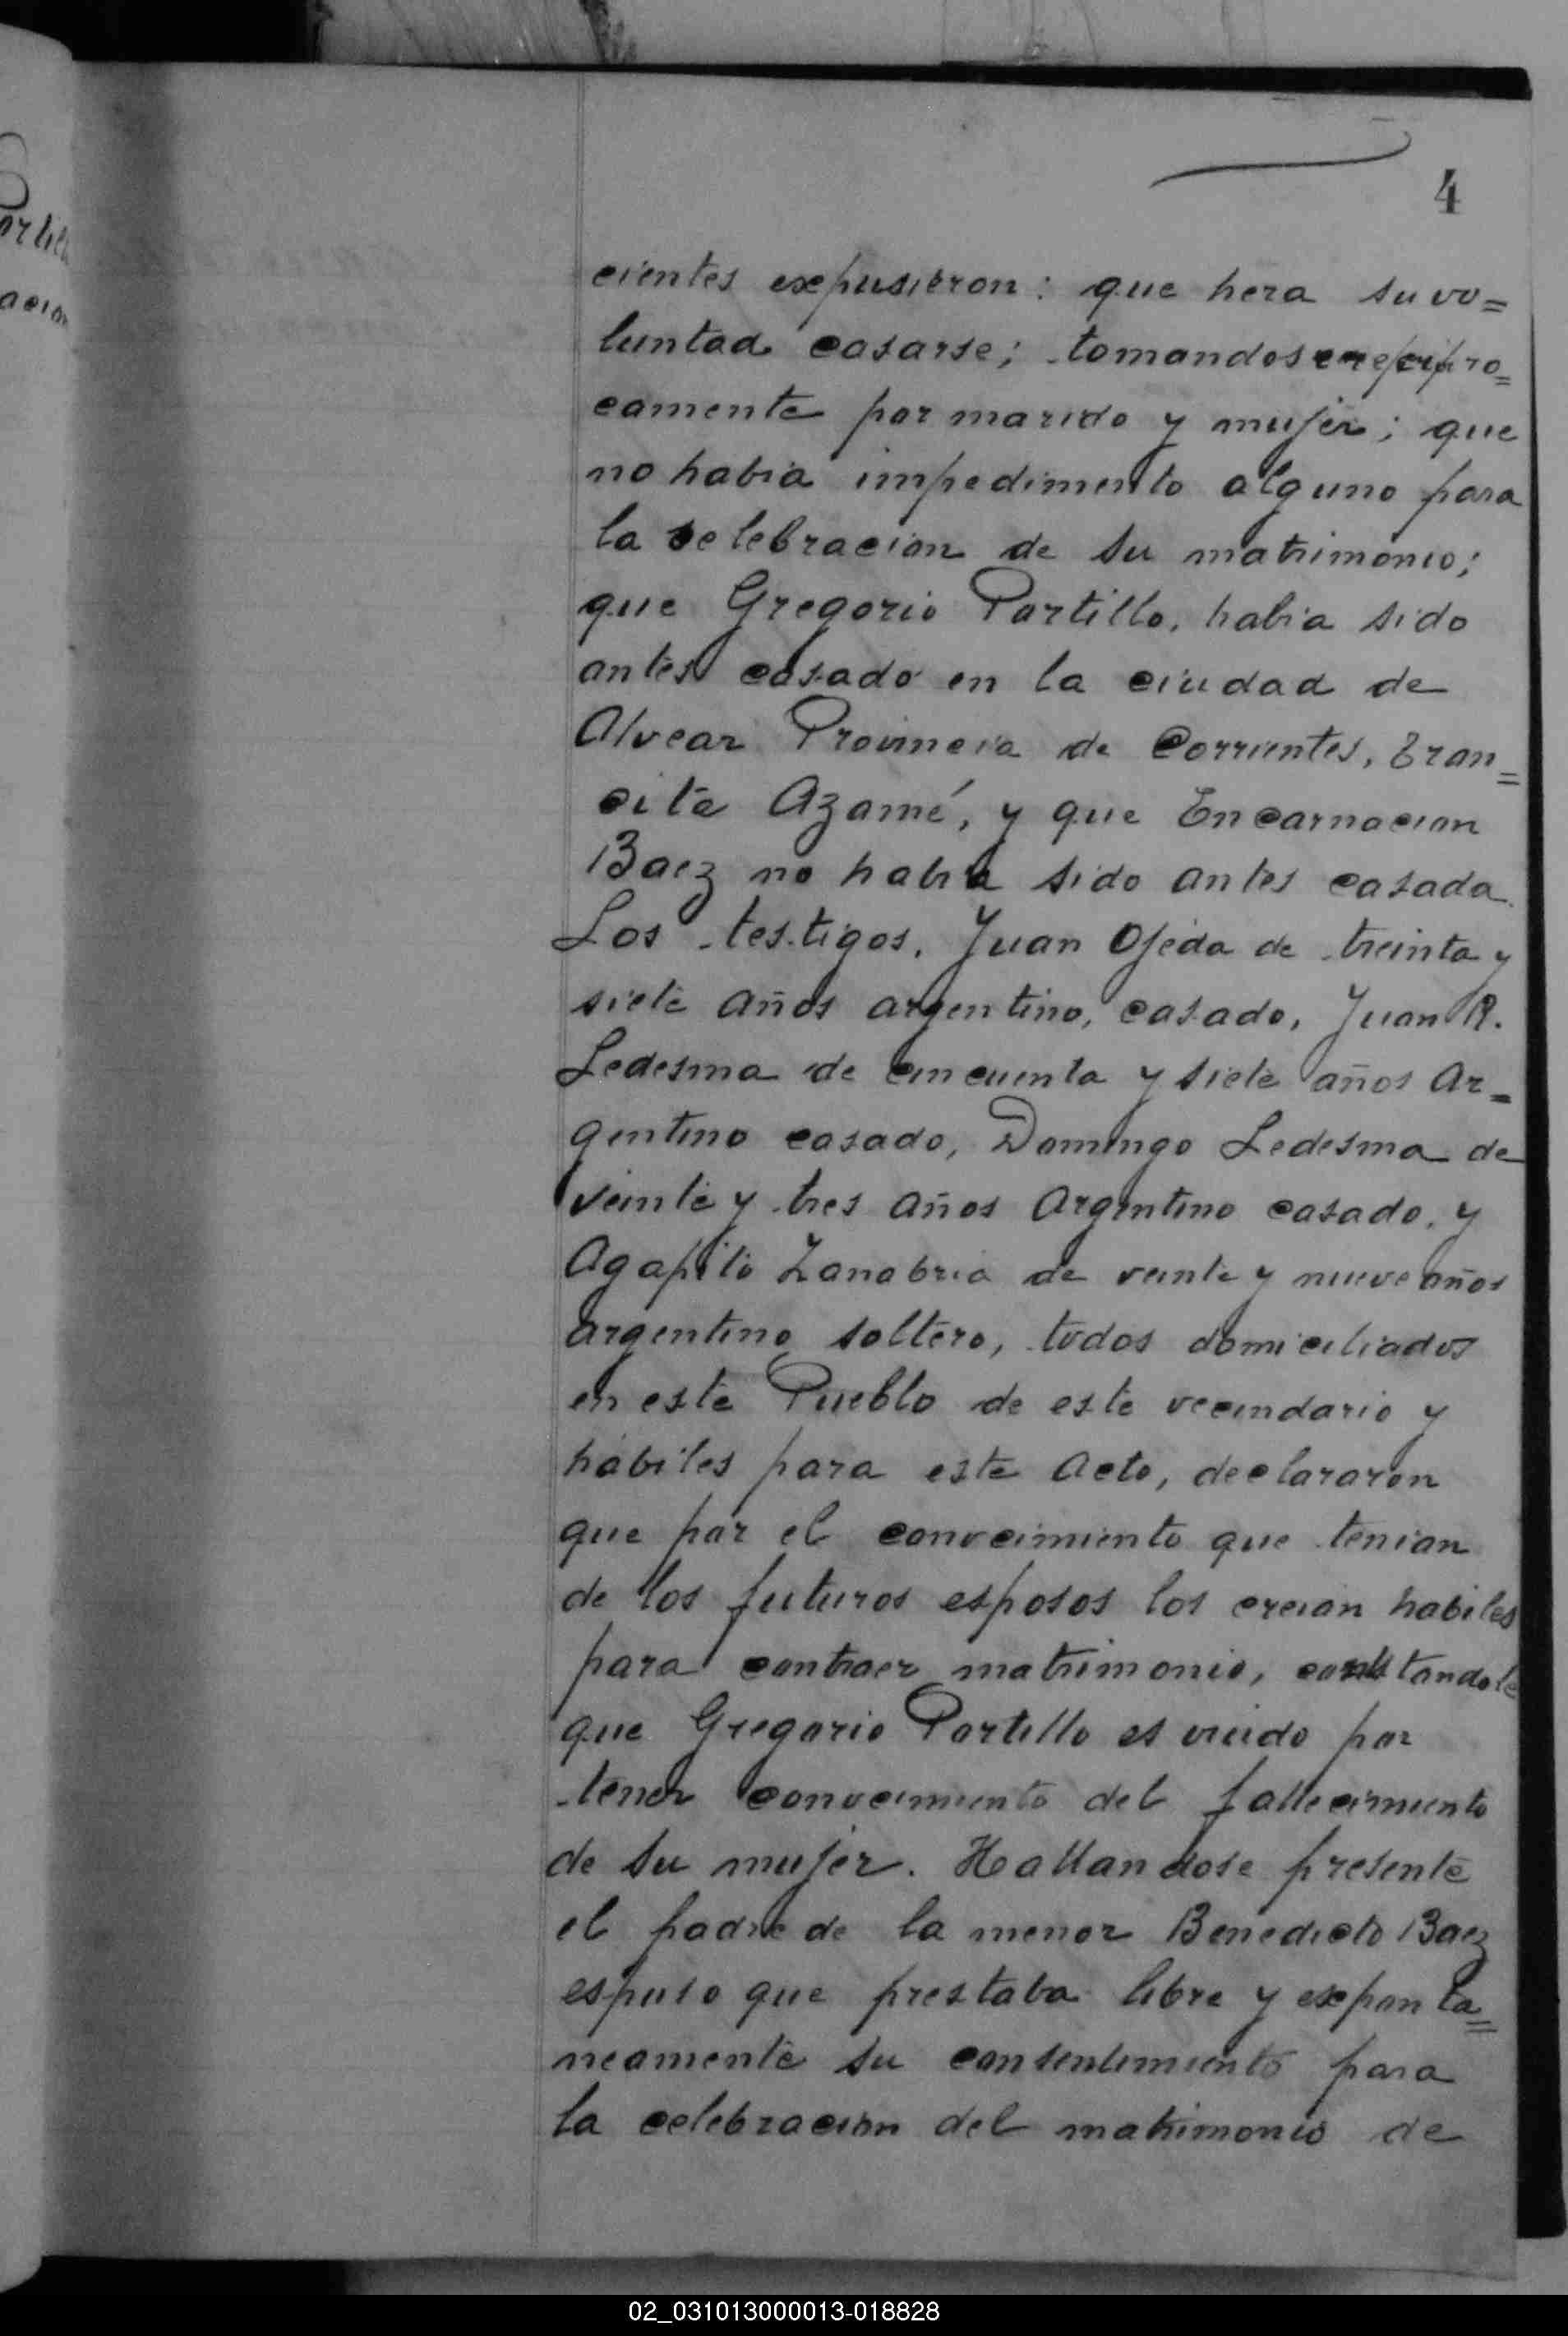 4
cientes expusieron: que hera su vo=
luntad casarse; tomandose recipro=
camente por marido y mujer; que
no habia impedimento alguno para
la celebracion de su matrimonio;
que Gregorio Portillo, habia sido
antes casado en la ciudad de
Alvear Provincia de Corrientes, Tran=
cita Azamé, y que Encarnacion
Baez no habia sido antes casada.
Los testigos, Juan Ojeda de treinta y
siete años argentino, casado, Juan R.
Ledesma de cincuenta y siete años Ar=
gentino casado, Domingo Ledesma de
veinte y tres años Argentino casado, y
Agapito Zanabria de veinte y nueve años
argentino soltero, todos domiciliados
en este Pueblo de este vecindario y
hábiles para este Acto, declararon
que por el conocimiento que tenian
de los futuros esposos los creian habiles
para contraer matrimonio, constandole
que Gregorio Portillo es viudo por
tener conocimiento del fallecimiento
de su mujer. Hallandose presente
el padre de la menor Benedicto Baez
espuso que prestaba libre y exponta=
neamente su consentimiento para
la celebracion del matrimonio de
02_031013000013-018828